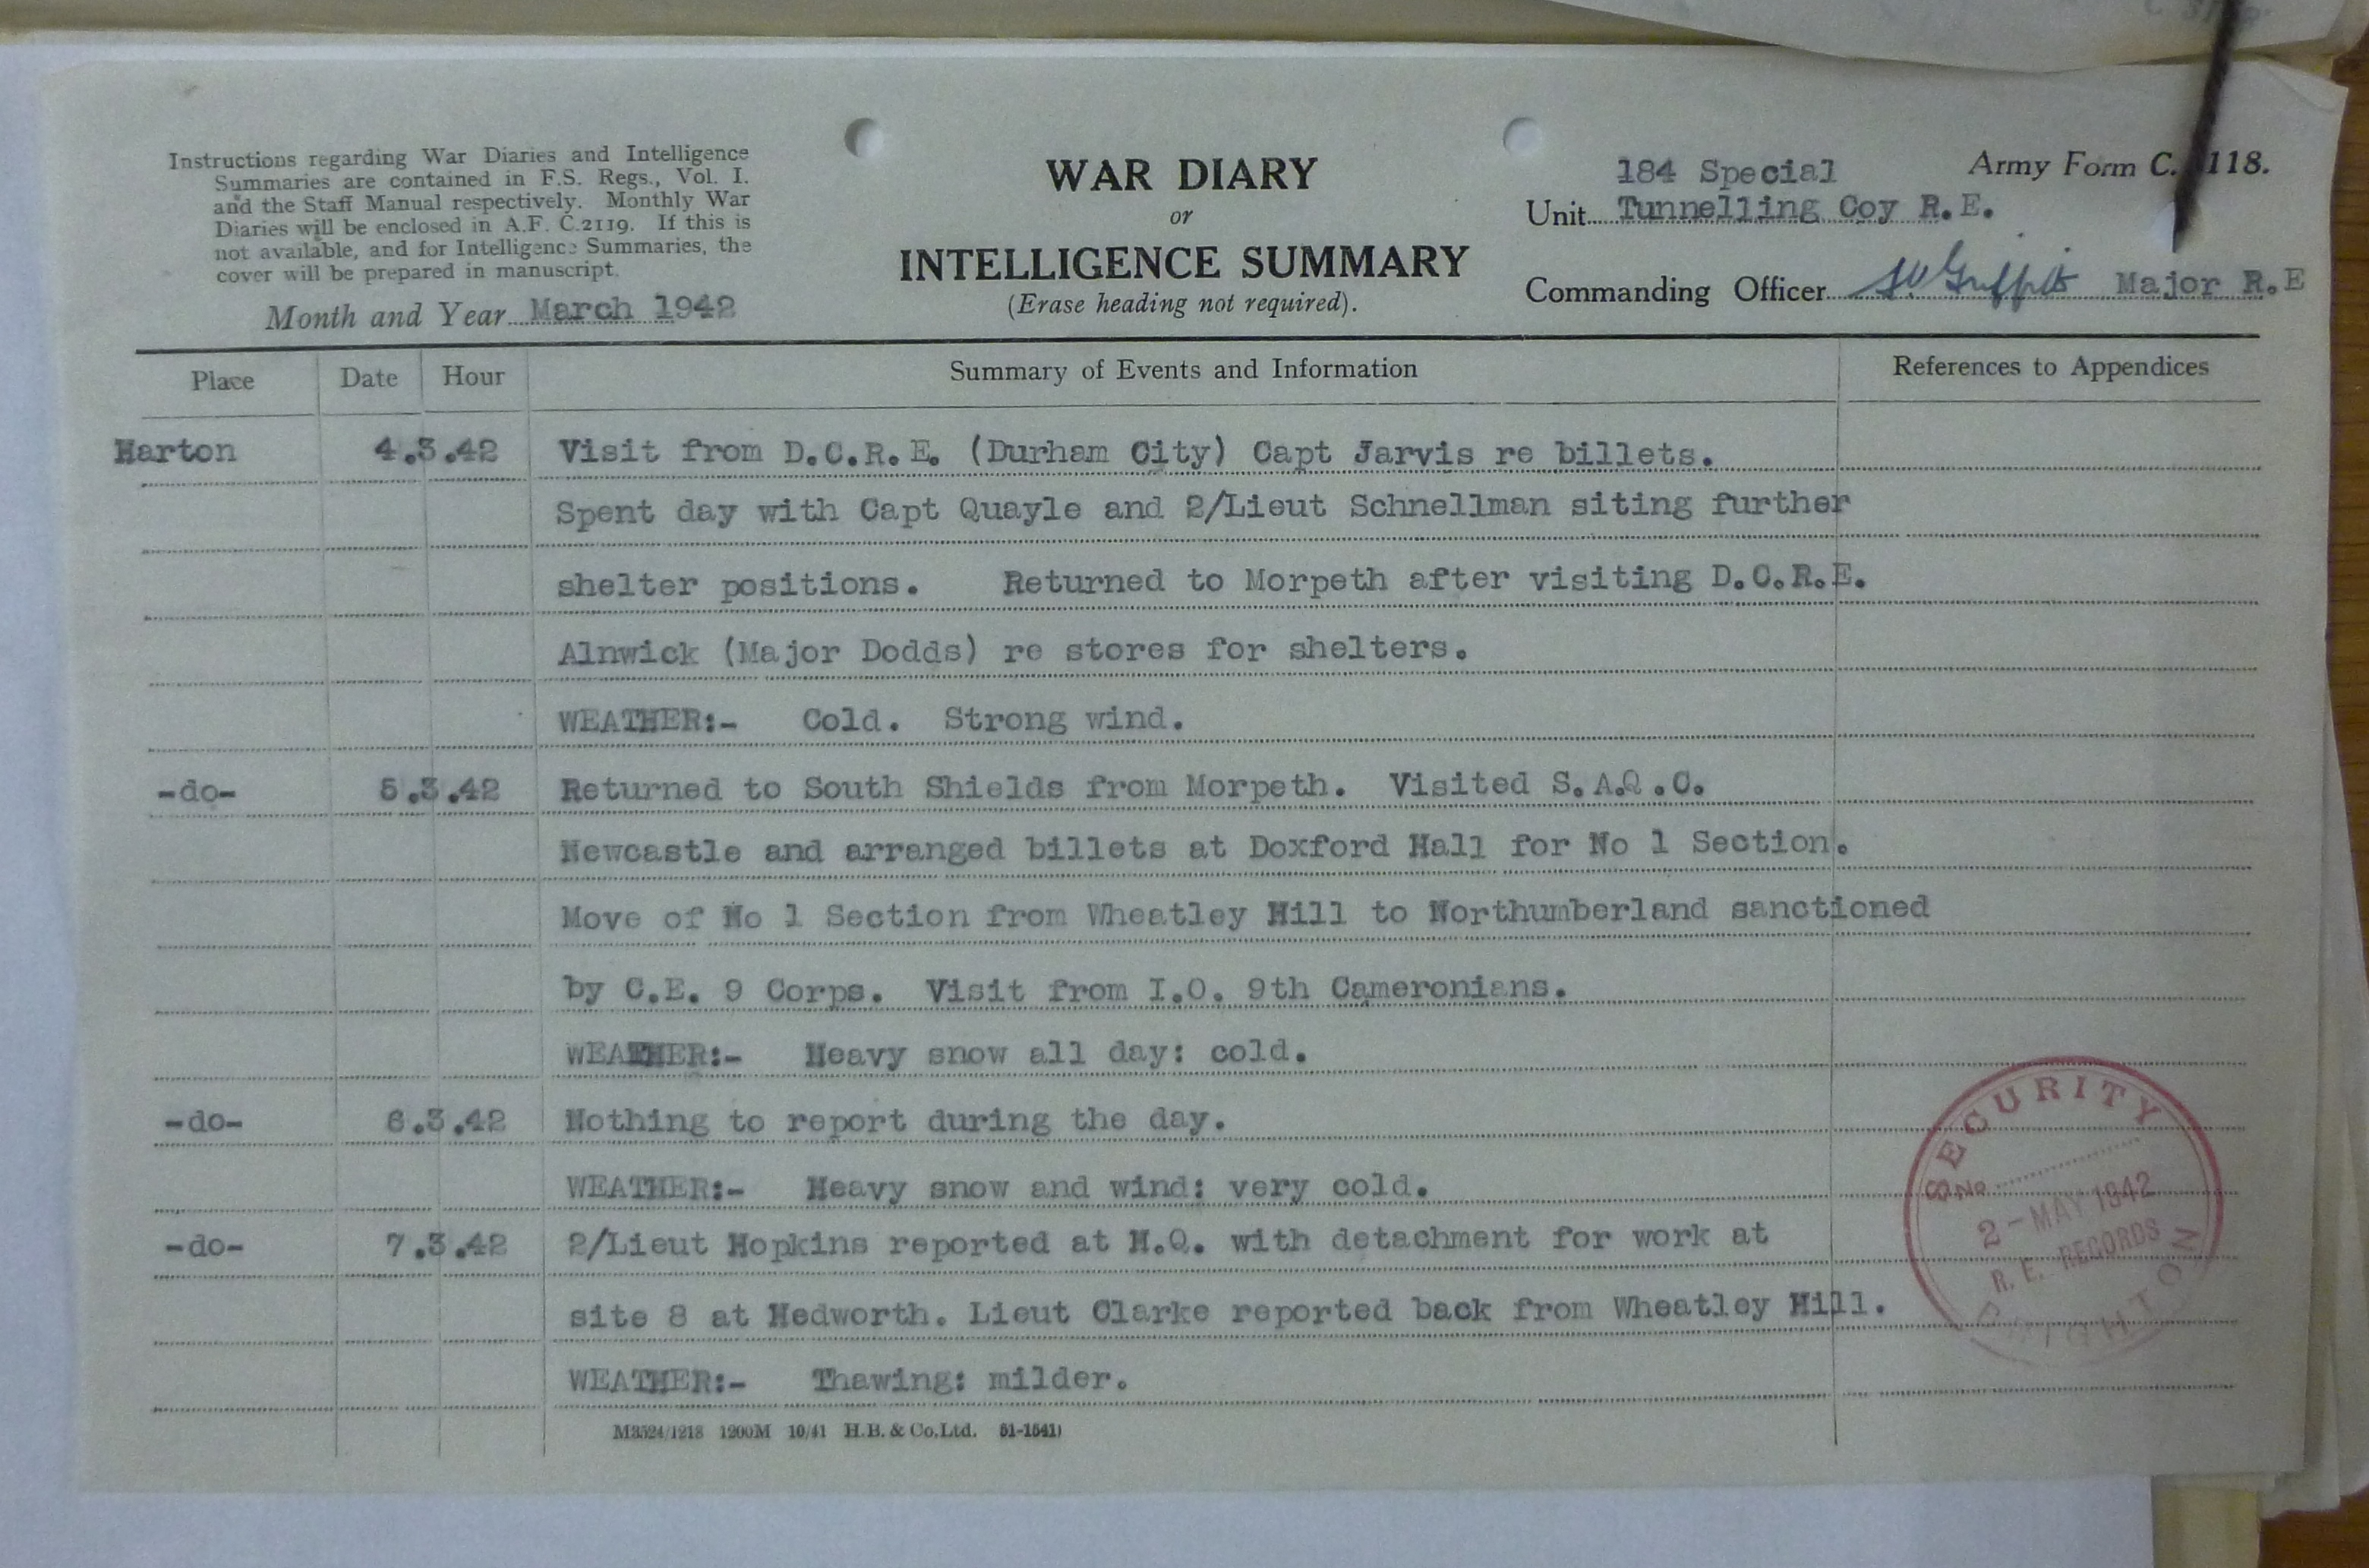 Instructions regarding War Diaries and Intelligence
Summaries are contained in F.S. Regs., Vol. I.
and the Staff Manual respectively. Monthly War
Diaries will be enclosed in A.F. C.2119. If this is
not available, and for Intelligence Summaries, the
cover will be prepared in manuscript.
Month and Year March 1942
WAR DIARY
or
INTELLIGENCE SUMMARY
(Erase heading not required).
Army Form C. 118.
184 Special
Unit Tunnelling Coy R.E.
Commanding Officer Major R.E
Place Date Hour Summary of Events and Information References to Appendices
Harton 4.3.42 Visit from D.C.R.E. (Durham City) Capt Jarvis re billets.
Spent day with Capt Quayle and 2/Lieut Schnellman siting further
shelter positions. Returned to Morpeth after visiting D.C.R.E.
Alnwick (Major Dodds) re stores for shelters.
WEATHER:- Cold. Strong wind.
-do- 5.3.42 Returned to South Shields from Morpeth. Visited S.A.Q.C.
Newcastle and arranged billets at Doxford Hall for No 1 Section.
Move of No 1 Section from Wheatley Hill to Northumberland sanctioned
by C.E. 9 Corps. Visit from I.O. 9th Cameronians.
WEATHER:- Heavy snow all day: cold.
-do- 6.3.42 Nothing to report during the day.
WEATHER:- Heavy snow and wind: very cold.
-do- 7.3.42 2/Lieut Hopkins reported at H.Q. with detachment for work at
site 8 at Hedworth. Lieut Clarke reported back from Wheatley Hill.
WEATHER:- Thawing: milder.
SECURITY
No
2-MAY 1942
R. E. RECORDS
BRIGHTON
M3524/1218 1200M 10/41 H.B. & Co.Ltd. 51-1541)